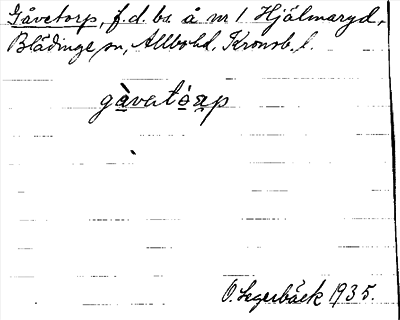 Gåvetorp, f.d. bs. å nr 1 Hjälmaryd,
Blädinge sn, Allbo hd, Kronob. l.
gàvetórp
O. Segerbäck 1935.